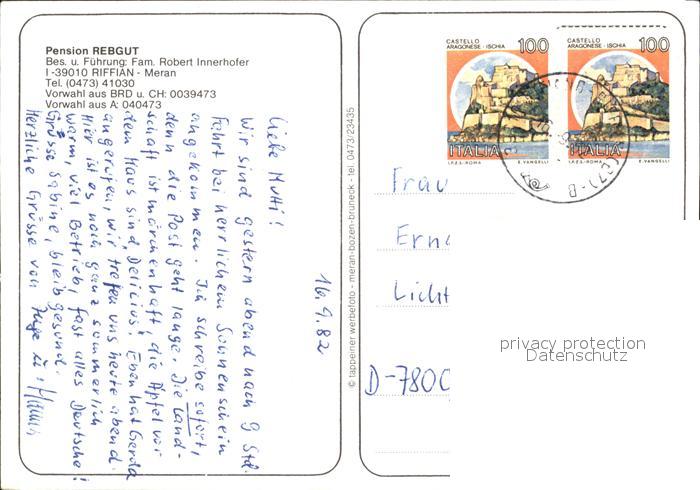 Pension REBGUT
Bes. u. Führung: Fam. Robert Innerhofer
I-39010 RIFFIAN - Meran
Tel. (0473) 41030
Vorwahl aus BRD u. CH: 0039473
Vorwahl aus A: 040473
16.9.82
Liebe Mutti!
Wir sind gestern abend nach 9 Std.
Fahrt bei herrlichem Sonnenschein
angekommen. Ich schreibe sofort,
denn die Post geht lange. Die Land-
schaft ist märchenhaft, die Äpfel vor
dem Haus sind, Delicius. Eben hat Gerda
angerufen, wir treffen uns heute abend.
Hier ist es noch ganz sommerlich
warm, viel Betrieb, fast alles Deutsche!
Grüsse Sabine, bleib gesund.
Herzliche Grüsse von Inge u.
© tappeiner werbefoto - meran-bozen-bruneck - tel. 0473/23435
CASTELLO
ARAGONESE - ISCHIA
100
ITALIA
I.P.Z.S.-ROMA E. VANGELLI
CASTELLO
ARAGONESE - ISCHIA
100
ITALIA
I.P.Z.S.-ROMA E. VANGELLI
Frau
Ern
Licht
D-7800
privacy protection
Datenschutz